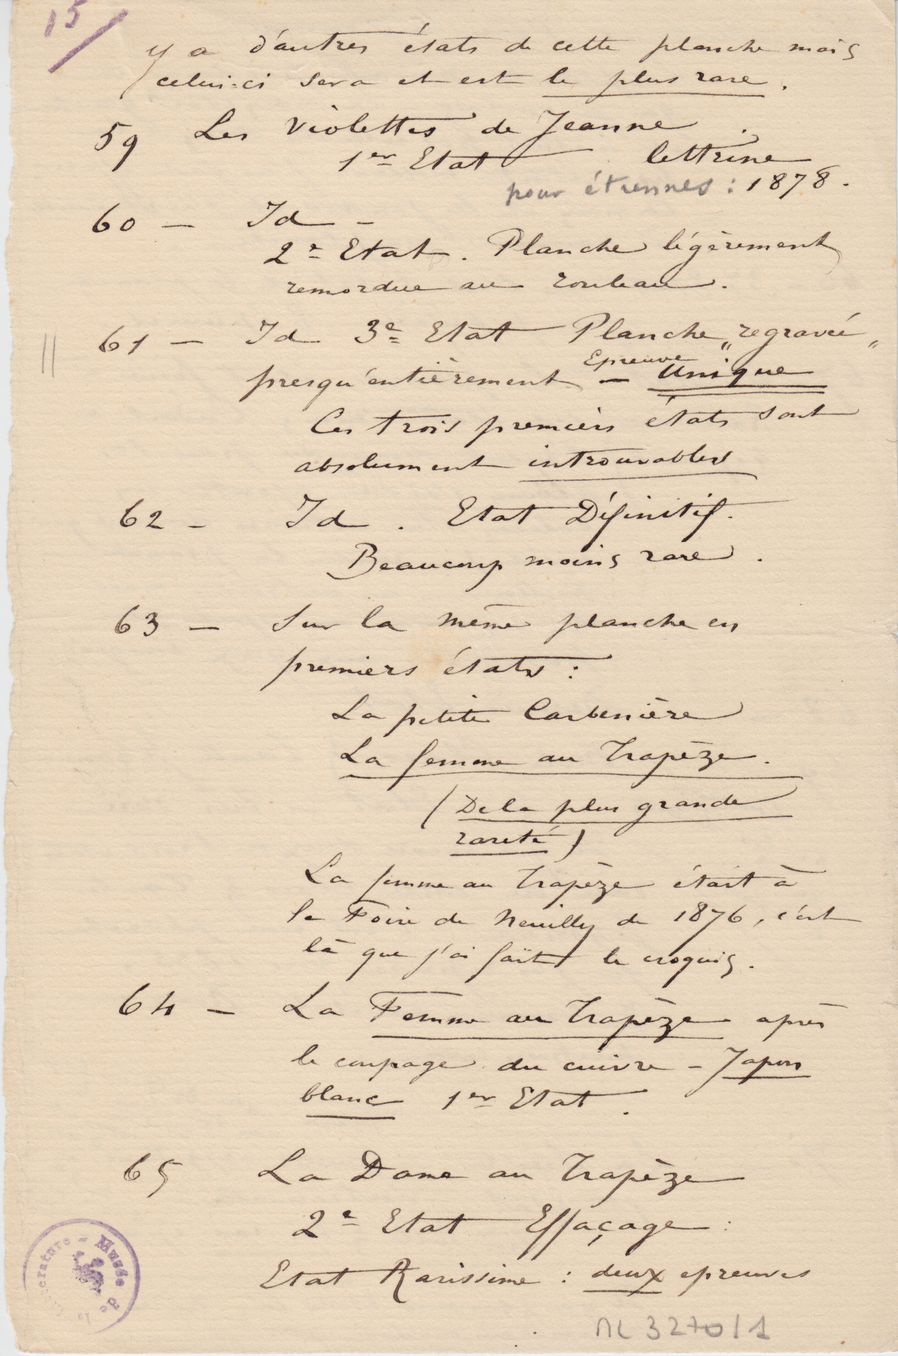 15/
y a d'autres états de cette planche mais
celui-ci sera et est le plus rare.
59 Les Violettes de Jeanne.
1er Etat lettrine
pour étrennes : 1878.
60 — Id —
2e Etat. Planche légèrement
remordue au rouleau.
61 — Id 3e Etat Planche „regravée„
presqu'entièrement — Epreuve Unique
Ces trois premiers états sont
absolument introuvables
62 — Id. Etat Définitif.
Beaucoup moins rare.
63 — Sur la même planche en
premiers états :
La petite
La femme au Trapèze.
(De la plus grande
rareté)
La femme au Trapèze était à
la Foire de Neuilly de 1876, c'est
là que j'ai fait le croquis.
64 — La Femme au Trapèze après
le coupage du cuivre — Japon
blanc 1er Etat.
65 La Dame au Trapèze
2e Etat Effaçage :
Etat Rarissime : deux epreuves
Musée de la Littérature
ML 3270/1